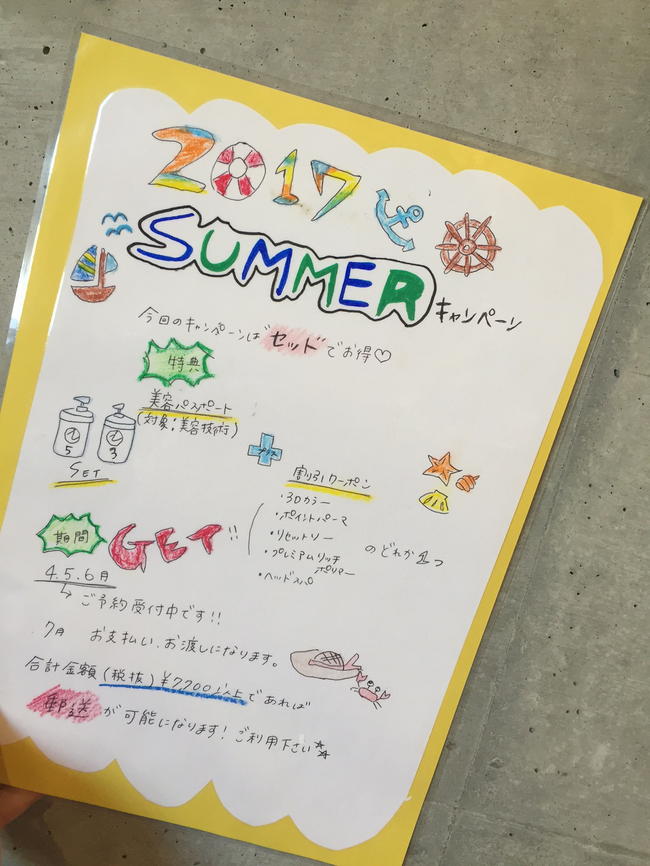 2017
SUMMER
キャンペーン
今回のキャンペーンは"セット"でお得♡
特典
美容パスポート
(対象:美容技術)
5 3
SET
プラス
割引クーポン
・3Dカラー
・ポイントパーマ
・リセットソー
・プレミアムリッチ
ポリマー
・ヘッドスパ
のどれか1つ
GET!!
期間
4.5.6月
↳ご予約受付中です!!
7月 お支払い、お渡しになります。
合計金額(税抜)¥7700以上であれば
郵送が可能になります!ご利用下さい☆